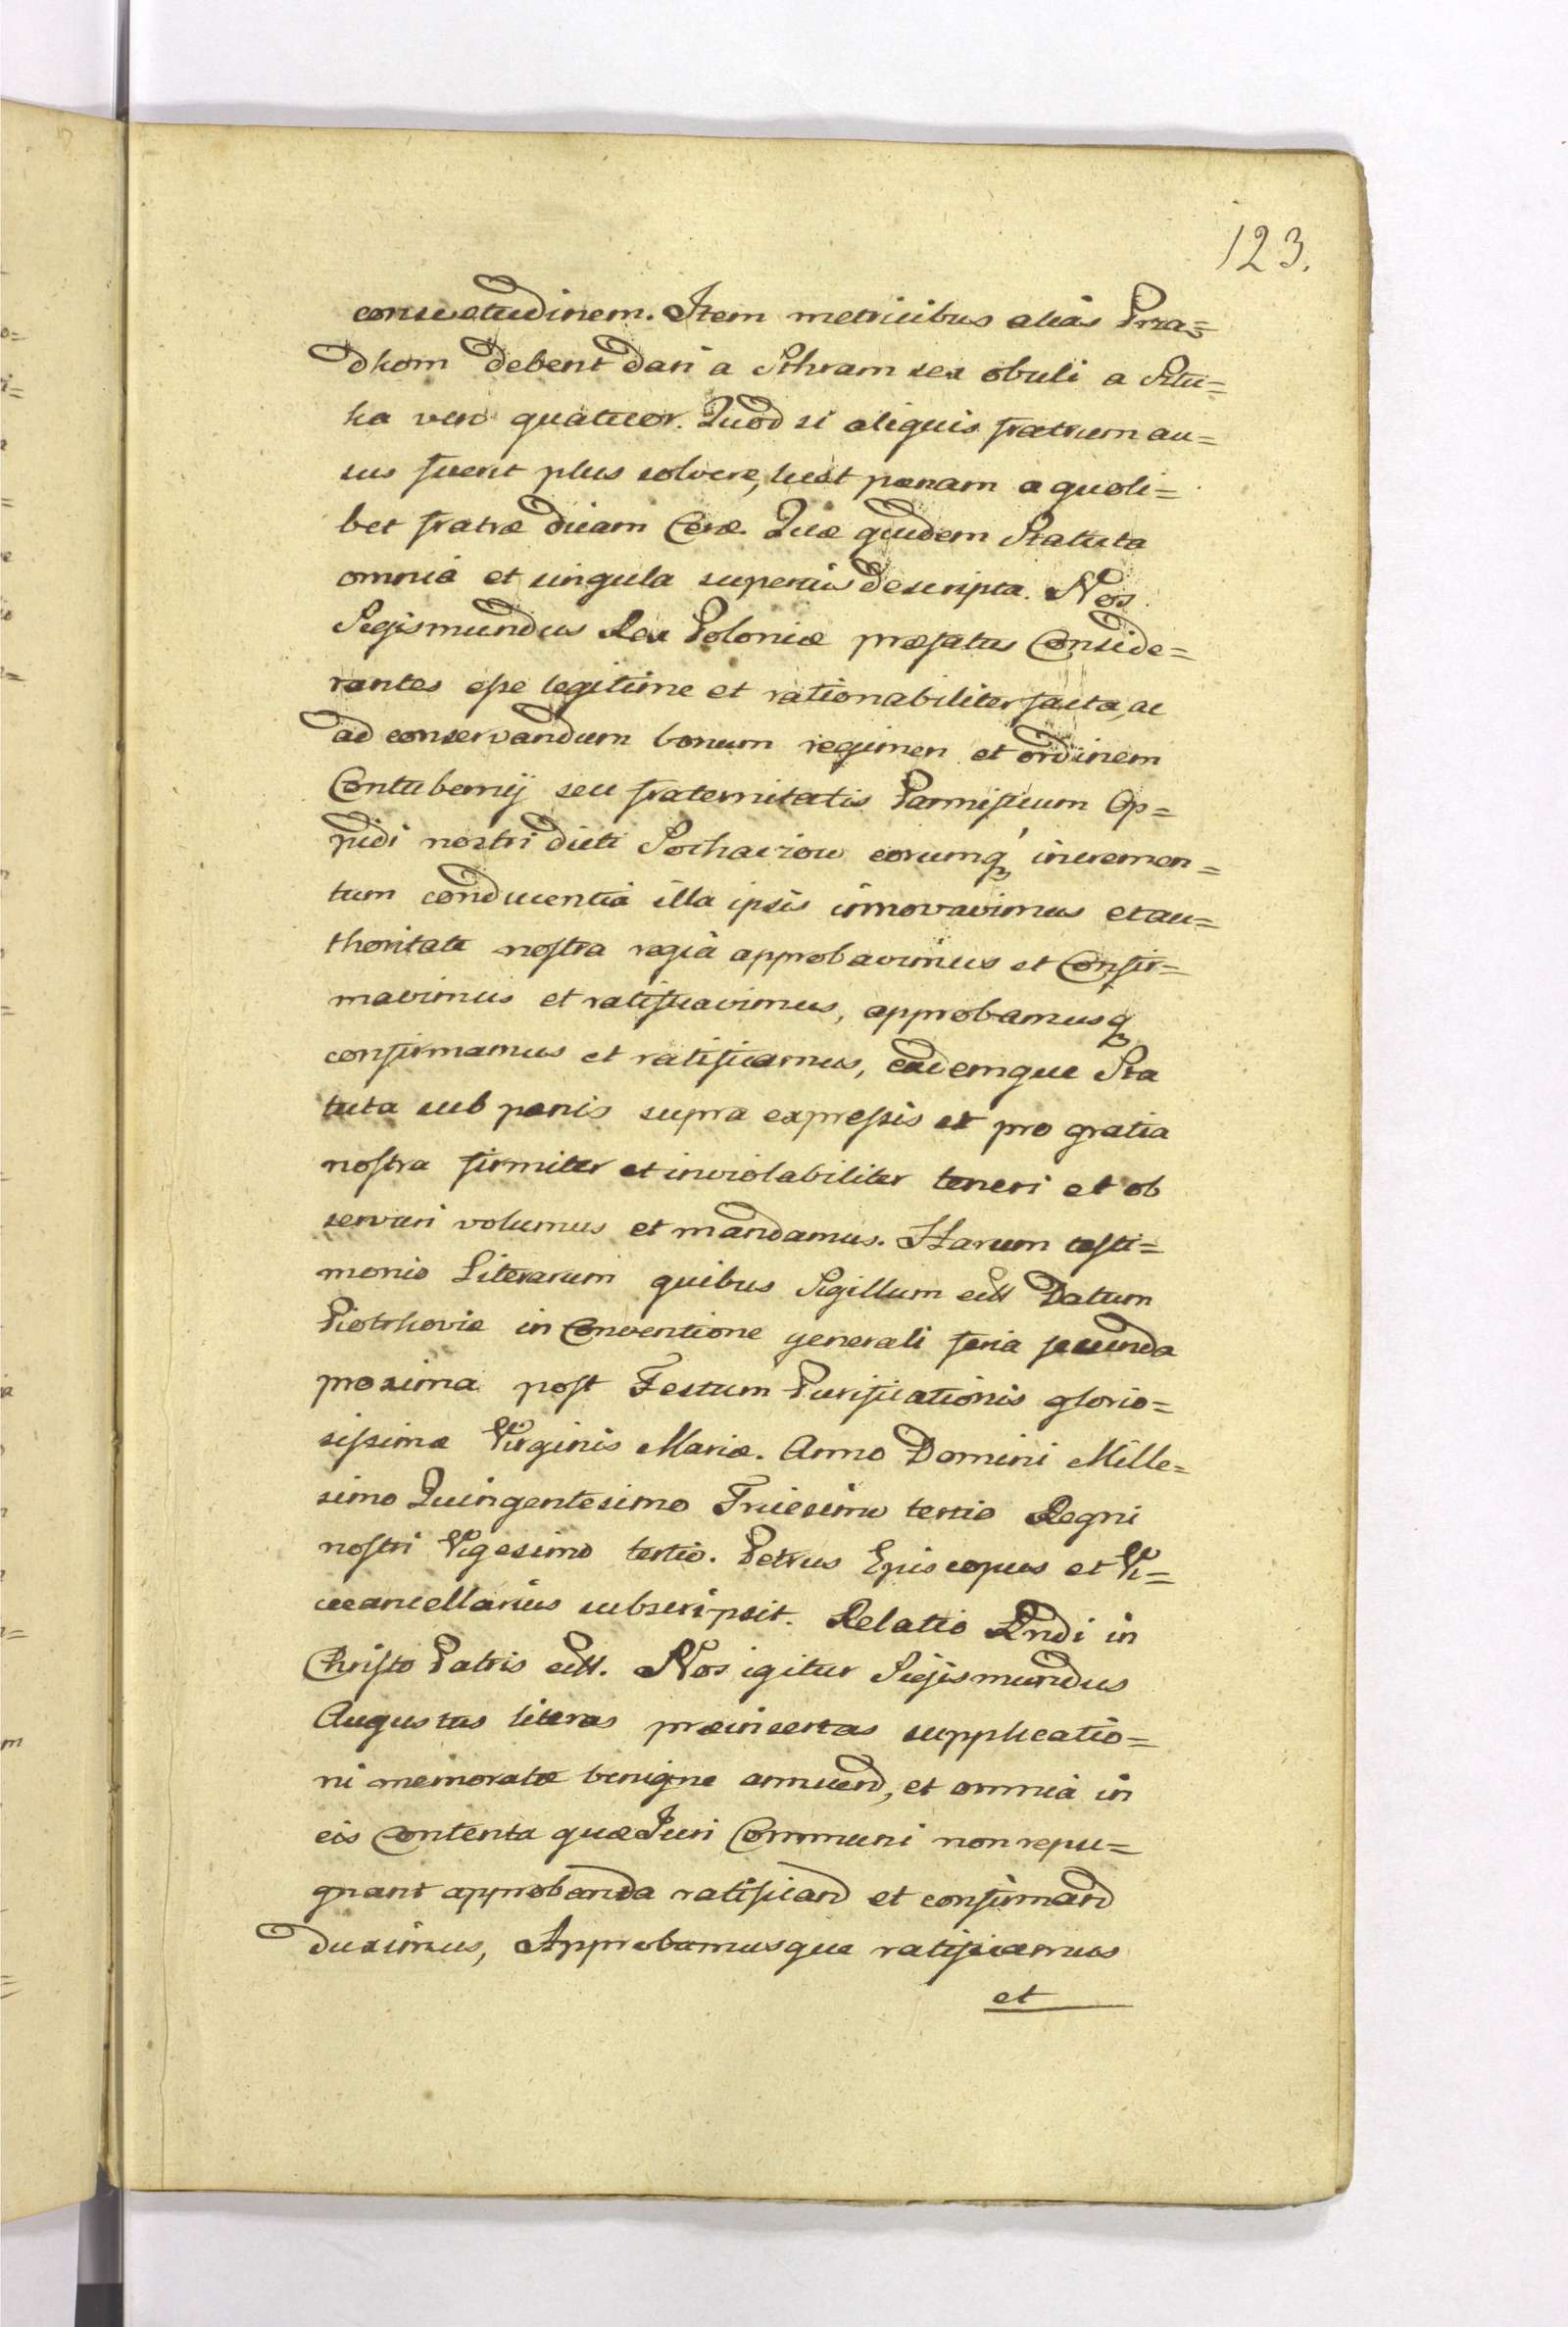 123.
consuetudinem. Item metricibus aliâs Prza=
dkom debent dari a Sthram sex obuli a Sztu=
ka vero quatuor. Quod si aliquis fratrum au=
sus fuerit plus solvere, luest pœnam a quoli=
bet fratræ duam Ceræ. Quæ quidem Statuta
omnia et singula superius descripta. Nos
Sigismundus Rex Poloniæ præfatus Conside=
rantes esse legitime et rationabiliter facta, ac
ad conservandum bonum regimen et ordinem
Contubernij seu fraternitatis Pannificum Op=
pidi nostri dicti Sochaczow eorumq́ incremen=
tum conducentia illa ipsis innovavimus et au=
thoritate nostra regia approbavimus et Confir=
mavimus et ratificavimus, approbamusq
confirmamus et ratificamus, eademque Sta
tuta sub pœnis supra expressis et pro gratia
nostra firmiter et inviolabiliter teneri et ob
servari volumus et mandamus. Harum testi=
monio Literarum quibus Sigillum ectt Datum
Piotrkoviæ in Conventione generali feria secunda
proxima post Festum Purificationis glorio=
sissimæ Virginis Mariæ. Anno Domini Mille=
simo Quingentesimo Tricesimo tertio Regni
nostri Vigesimo tertio. Petrus Episcopus et Vi=
cecancellarius subscripsit. Relatio Rndi in
Christo Patris ectt. Nos igitur Sigismundus
Augustus literas præinsertas supplicatio=
ni memoratæ benigne annuend, et omnia in
eis Contenta quæ Juri Communi non repu=
gnant approbanda ratificand et confirmand
duximus, Approbamusque ratificamus
et